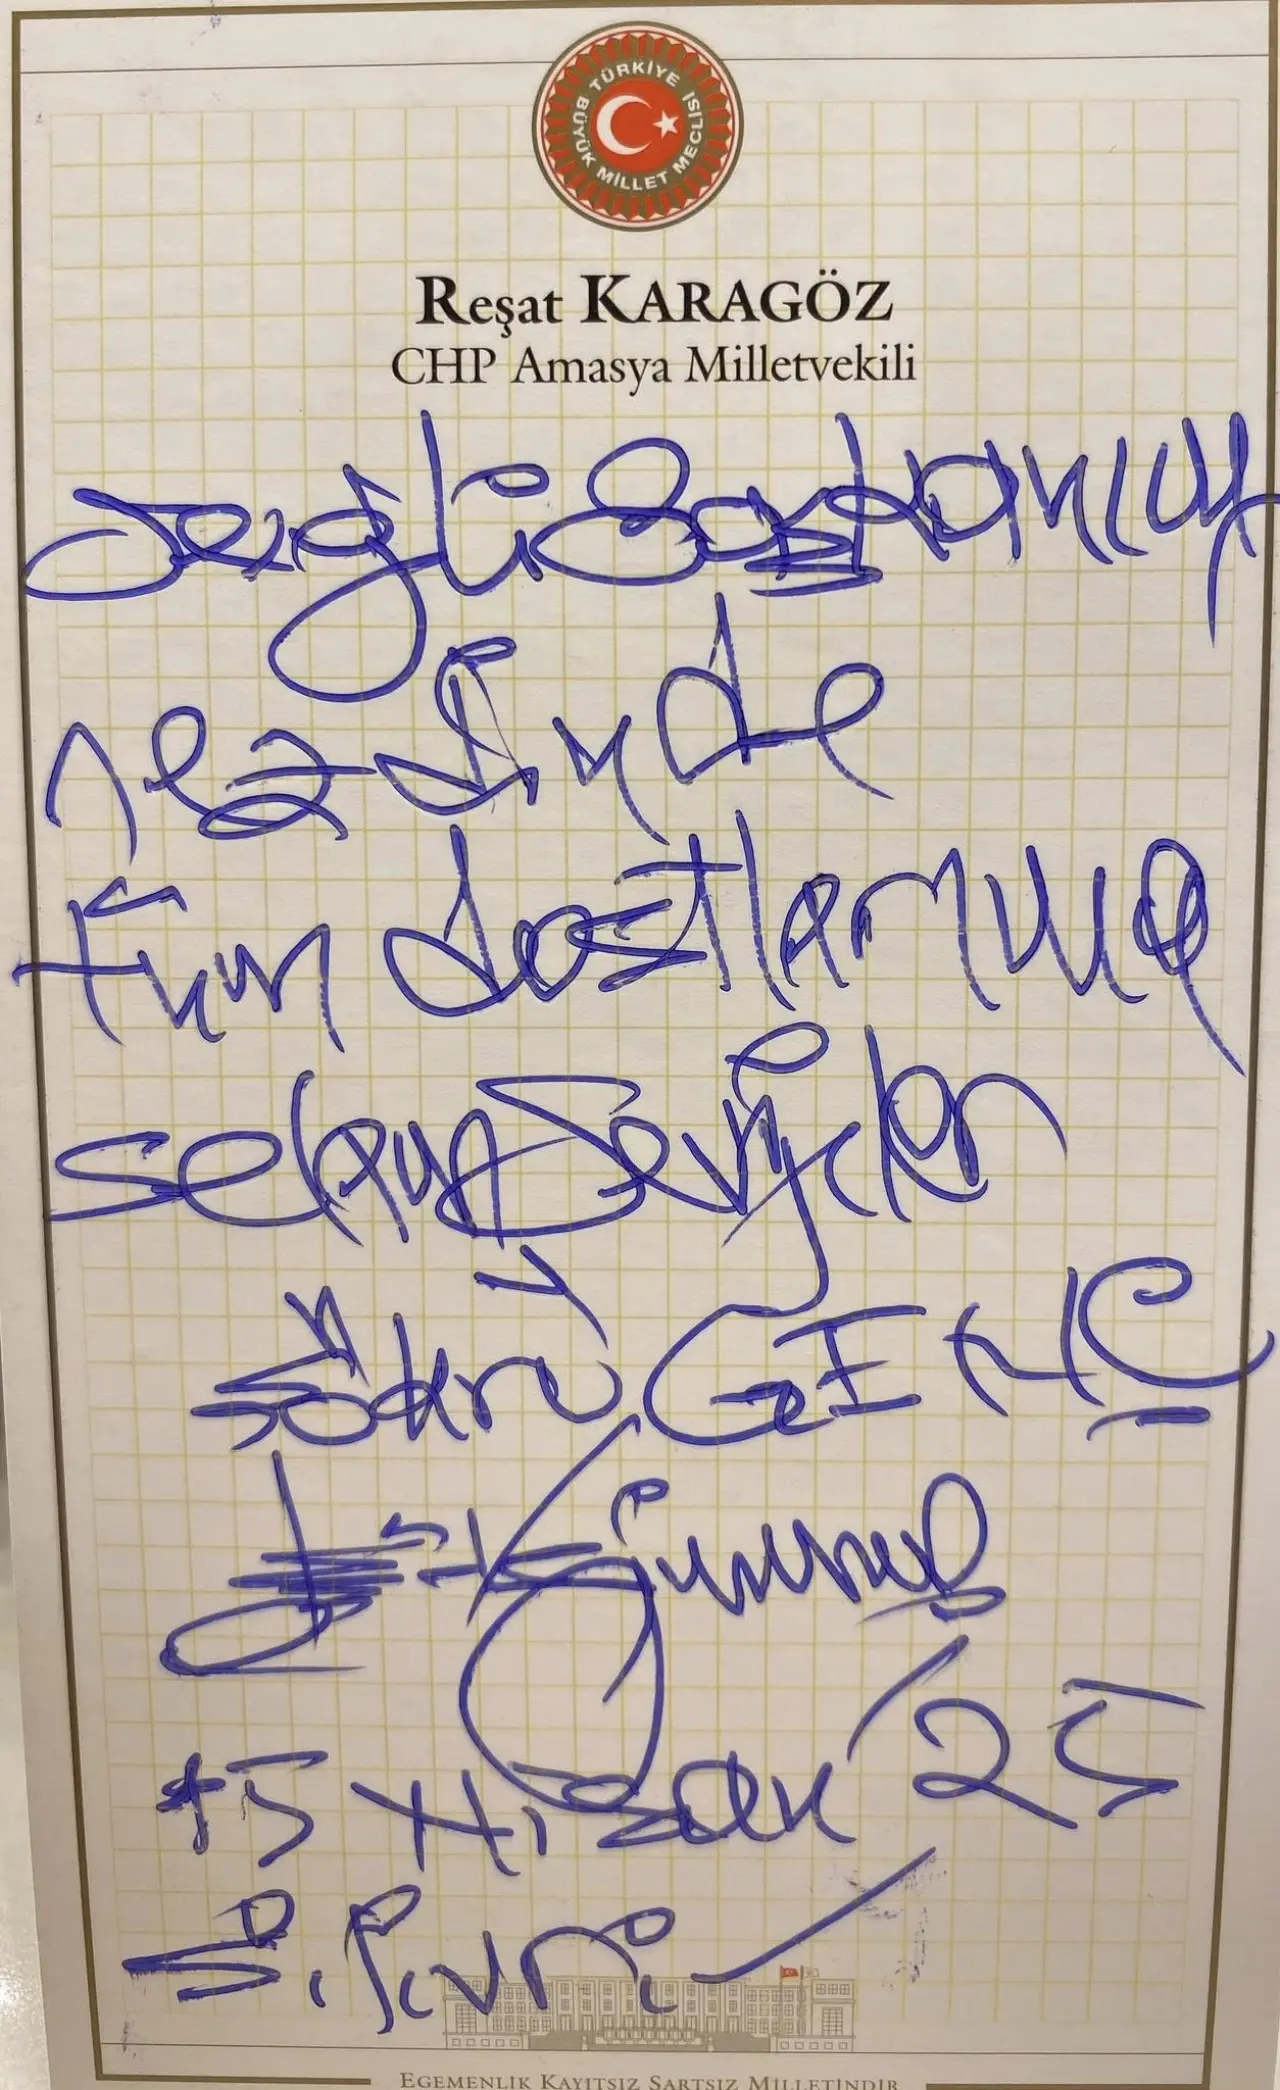 TÜRKİYE BÜYÜK MİLLET MECLİSİ
Reşat KARAGÖZ
CHP Amasya Milletvekili
Sevgili Başkanım
nezdinde
tüm dostlarıma
selam Sevgiler
Şükrü GENÇ
15 Nisan /25
Silivri
EGEMENLİK KAYITSIZ ŞARTSIZ MİLLETİNDİR